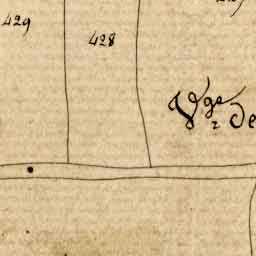 429
428
Vge de